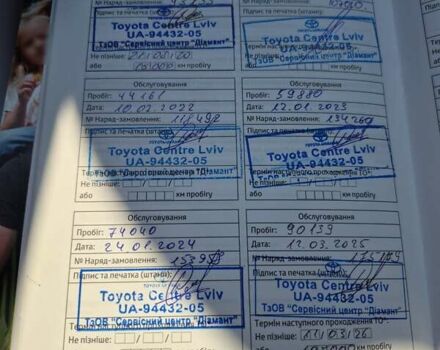 № Наряд-замовлення:
Підпис та печатка (штамп):
TOYOTA
Toyota Centre Lviv
UA-94432-05
ТзОВ "Сервісний центр "Діамант"
Не пізніше:
або км пробігу
№ Наряд-замовлення:
Підпис та печатка (штамп):
TOYOTA
Toyota Centre Lviv
UA-94432-05
ТзОВ "Сервісний центр "Діамант"
Не пізніше:
або км пробігу
Обслуговування
Пробіг: 44161
Дата: 10.02.2022
№ Наряд-замовлення: 118498
Підпис та печатка (штамп):
Toyota Centre Lviv
UA-94432-05
Не пізніше:
або км пробігу
Обслуговування
Пробіг: 59880
Дата: 12.01.2023
№ Наряд-замовлення: 134260
Підпис та печатка (штамп):
Toyota Centre Lviv
UA-94432-05
Термін наступного проходження ТО*:
Не пізніше:
або км пробігу
Обслуговування
Пробіг: 74040
Дата: 24.01.2024
№ Наряд-замовлення: 153958
Підпис та печатка (штамп):
Toyota Centre Lviv
UA-94432-05
ТзОВ "Сервісний центр "Діамант"
Не пізніше:
або км пробігу
Обслуговування
Пробіг: 90139
Дата: 12.03.2025
№ Наряд-замовлення:
Підпис та печатка (штамп):
Toyota Centre Lviv
UA-94432-05
ТзОВ "Сервісний центр "Діамант"
Термін наступного проходження ТО*:
Не пізніше: 11/03/26
або км пробігу